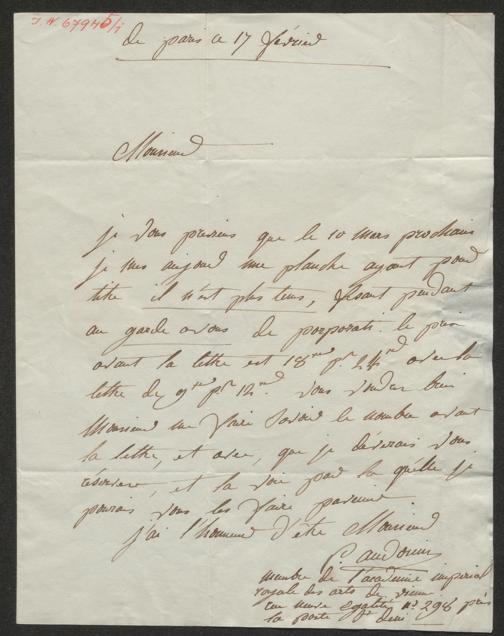 J.N. 67945/1
de paris ce 17 février
Monsieur
je vous previens que le 10 mars prochain
je mes aujour une planche ayant pour
titre il n'est plus tems, fesant pendant
au garde avous de porporati. le prix
avant la lettre est 18 pr. 24 avec la
lettre de 9 pr 12. vous voudrez bien
Monsieur me faire savoir le nombre avant
la lettre, et avec, que je deverais vous
réserver, et la voie par la quélle je
pourais vous les faire parvenir.
j'ai l'honneur d'être Monsieur
P. audouin
membre de l'academie imperial
royale des arts de vienne
rue neuve egalité no. 298 près
la porte st denis